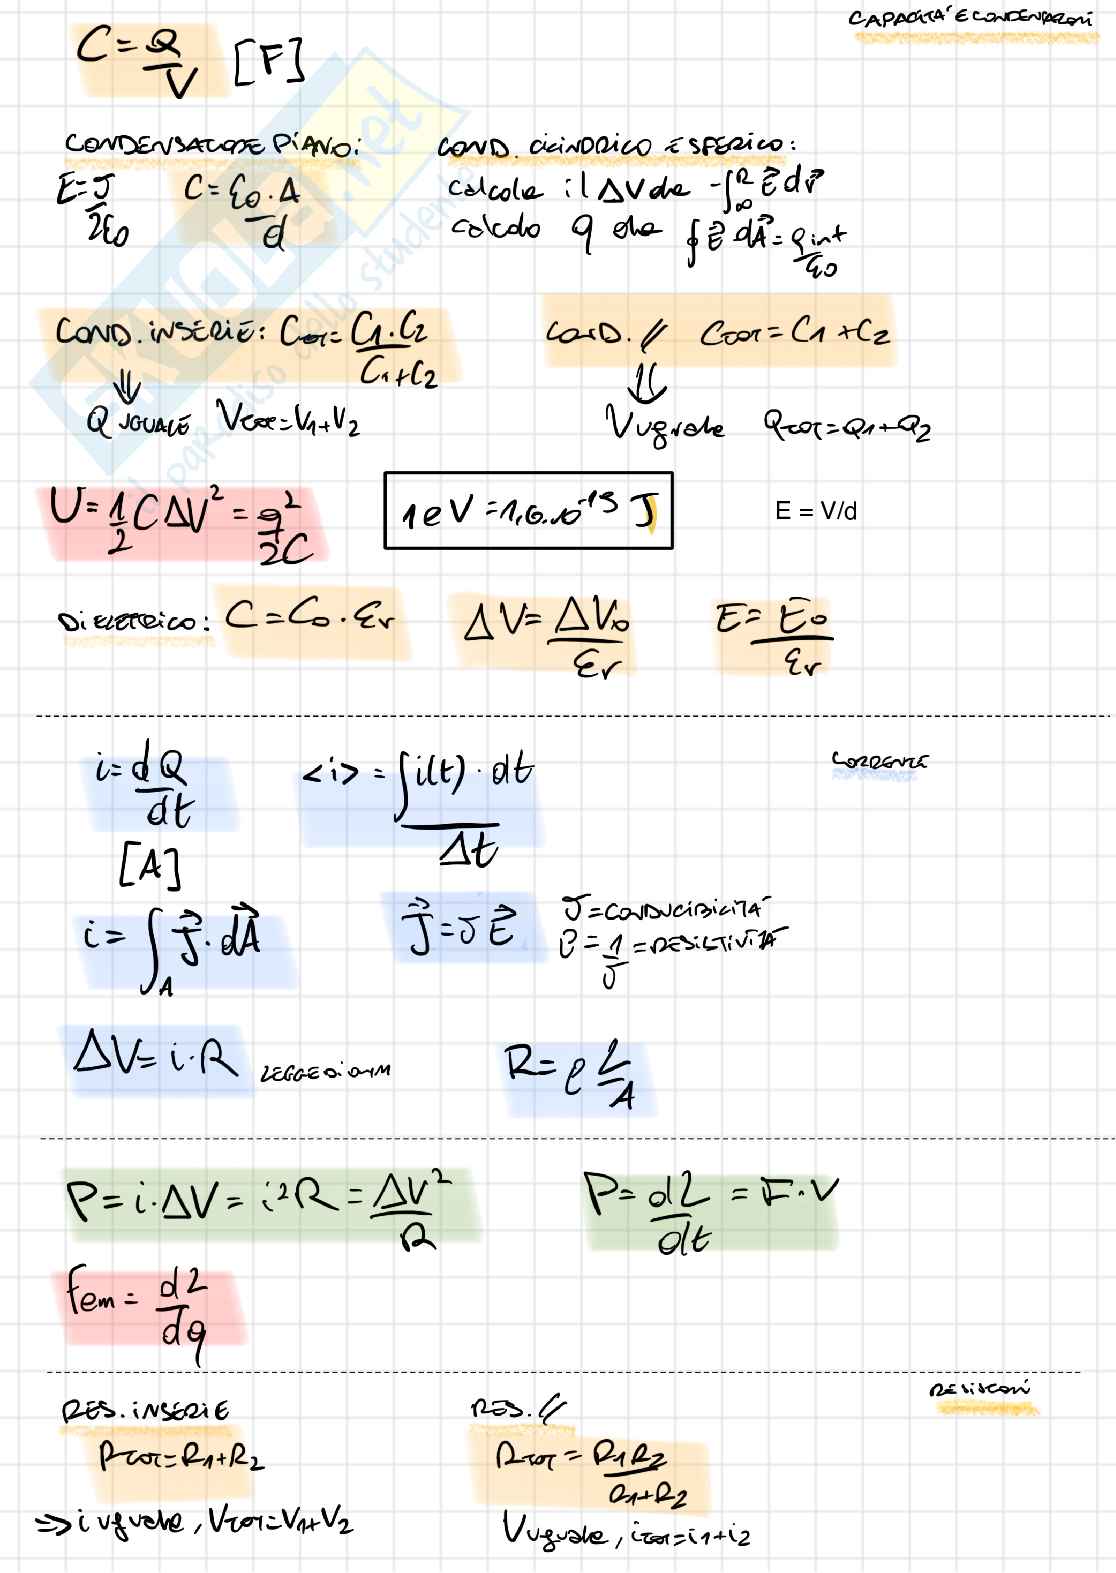 CAPACITÀ E CONDENSATORI
C = Q/V [F]
CONDENSATORE PIANO:
E = σ/2ε0   C = ε0 · A/d
COND. CILINDRICO E SFERICO:
calcolo il ΔV da -∫_∞^R E⃗ dr⃗
calcolo q da ∮ E⃗ dA⃗ = qint/ε0
COND. IN SERIE: CTOT = C1 · C2/C1+C2
⇓
Q UGUALE VTOT = V1+V2
COND. // CTOT = C1 + C2
⇓
V uguale QTOT = Q1+Q2
U = 1/2 C ΔV² = q²/2C
1 eV = 1,6·10^-19 J
E = V/d
DIELETTRICO: C = C0 · εr   ΔV = ΔV0/εr   E = E0/εr
CORRENTE
i = dQ/dt   <i> = ∫i(t) · dt/Δt
[A]
i = ∫_A J⃗ · dA⃗   J⃗ = σ E⃗
σ = CONDUCIBILITÀ
ρ = 1/σ = RESISTIVITÀ
ΔV = i · R LEGGE DI OHM   R = ρ L/A
P = i · ΔV = i²R = ΔV²/R   P = dL/dt = F · v
fem = dL/dq
RESISTORI
RES. IN SERIE
RTOT = R1+R2
⇒ i uguale, VTOT = V1+V2
RES. //
RTOT = R1R2/R1+R2
V uguale, iTOT = i1+i2
skuola.net
il paradiso dello studente